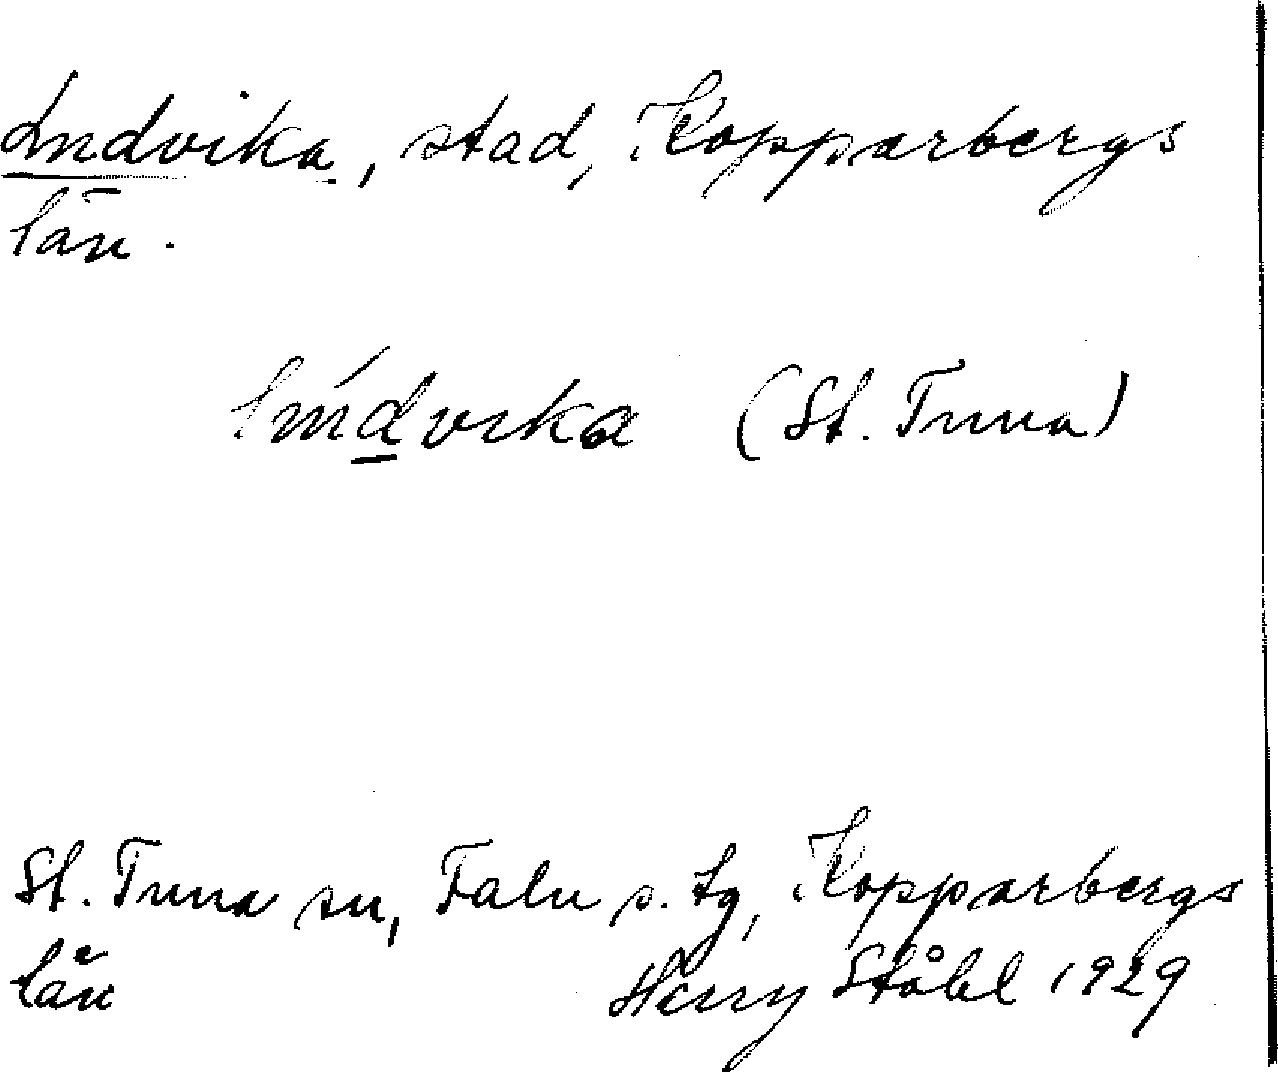 Ludvika, stad, Kopparbergs
län.
lúdvika (St. Tuna)
St. Tuna sn, Falu s. tg, Kopparbergs
län Harry Ståhl 1929